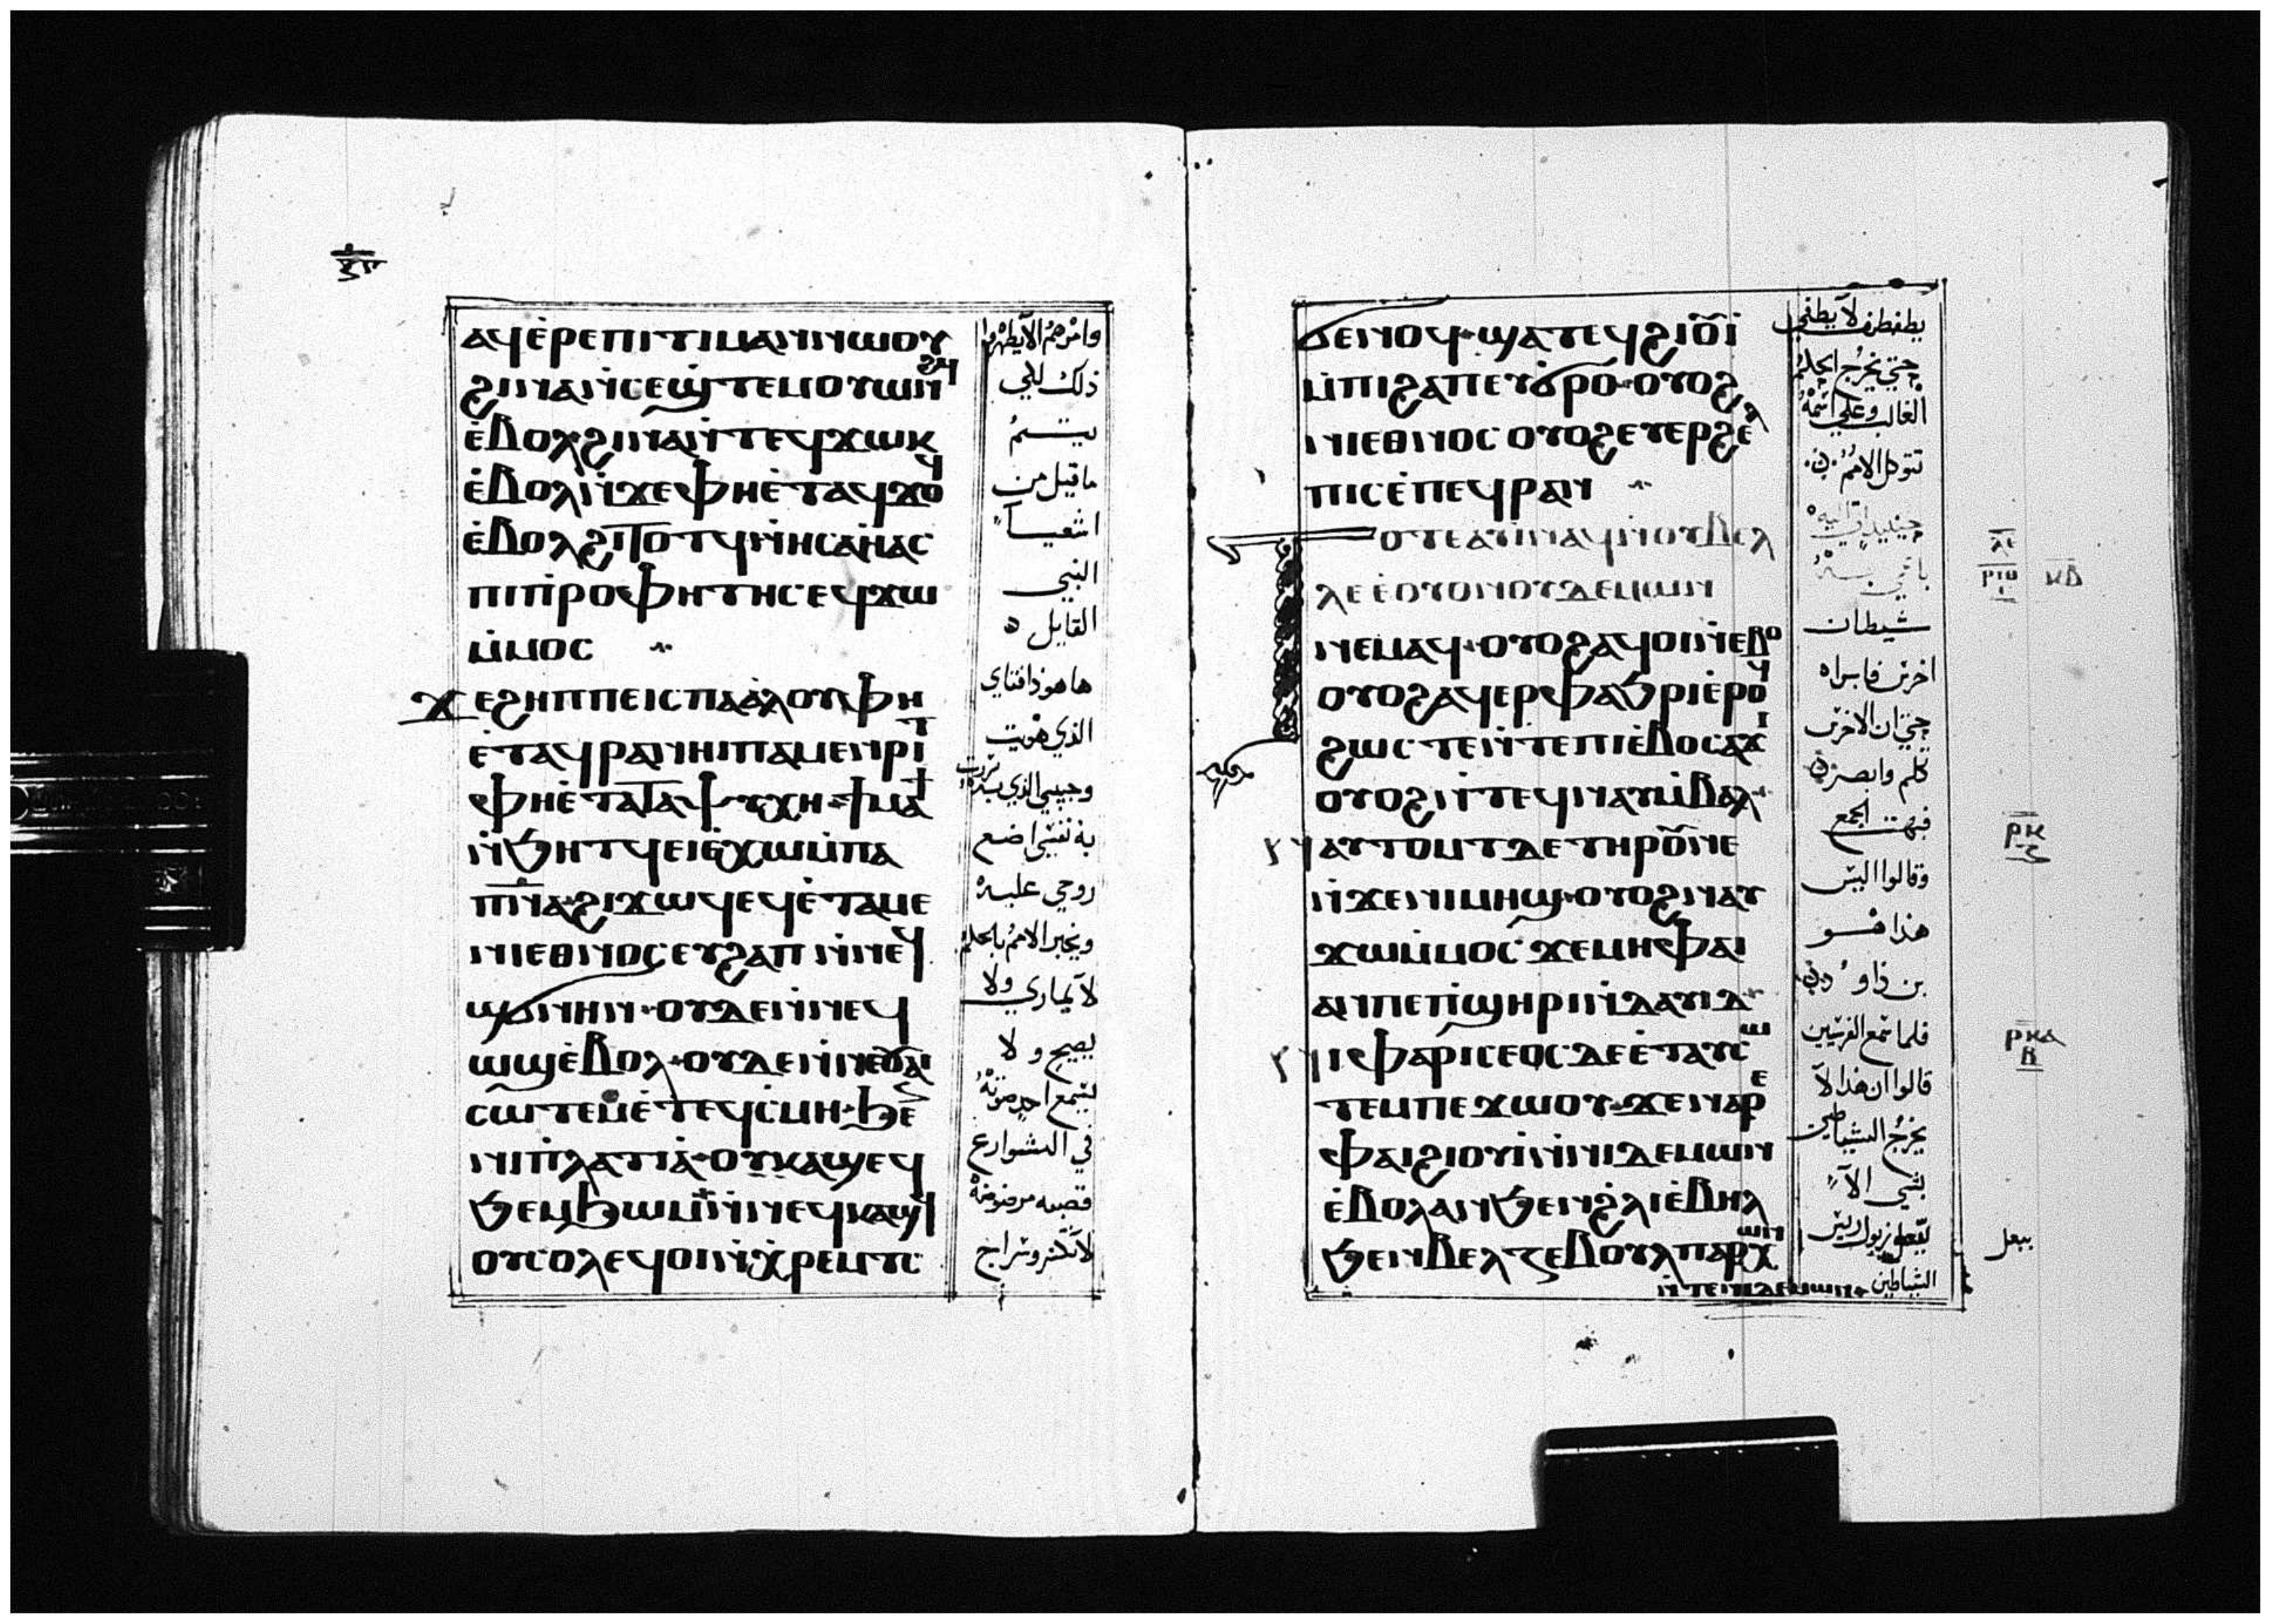 ⲁϥⲉ̀ⲣⲉⲡⲓⲧⲓⲙⲁⲛⲛⲱⲟⲩ
ϩⲓⲛⲁⲛ̀ⲥⲉϣ̀ⲧⲉⲙⲟⲩⲱⲛϩϥ
ⲉ̀ⲃⲟⲗ·ϩⲓⲛⲁⲛ̀ⲧⲉϥϫⲱⲕ
ⲉ̀ⲃⲟⲗⲛ̀ϫⲉⲫⲏⲉ̀ⲧⲁϥϫⲟϥ
ⲉ̀ⲃⲟⲗϩⲓⲧⲟⲧϥⲛ̀ⲏⲥⲁⲏ̀ⲁⲥ
ⲡⲓⲡ̀ⲣⲟⲫⲏⲧⲏⲥⲉϥϫⲱ
ⲙ̀ⲙⲟⲥ
ϫⲉϩⲏⲡⲡⲉⲓⲥⲡⲁⲁ̀ⲗⲟⲩⲫⲏ
ⲉ̀ⲧⲁϥⲣⲁⲛⲏⲓⲡⲁⲙⲉⲛⲣⲓⲧ
ⲫⲏⲉ̀ⲧⲁⲧⲁⲯⲩⲭⲏ·ϯⲙⲁϯ
ⲛ̀ϧⲏⲧϥⲉⲓⲉ̀ⲭⲱⲙ̀ⲡⲁ
ⲡ̅ⲛ̅ⲁ̅·ϩⲓϫⲱϥⲉϥⲉ̀ⲧⲁⲙⲉ
ⲛⲓⲉⲑⲛⲟⲥⲉⲩϩⲁⲡⲛ̀ⲛⲉϥ
ϣϭⲛⲏⲛ·ⲟⲩⲇⲉⲛ̀ⲛⲉϥ
ⲱϣⲉ̀ⲃⲟⲗ·ⲟⲩⲇⲉⲛ̀ⲛⲉⲟⲩⲁⲓ
ⲥⲱⲧⲉⲙⲉ̀ⲧⲉϥⲥ̀ⲙⲏ·ϩⲉ̀
ⲛⲓⲡ̀ⲗⲁⲧⲓⲁ̀·ⲟⲩⲕⲁϣⲉϥ
ϧⲉⲙϧⲱⲙⲛ̀ⲛⲉϥⲕⲁϣϥ
ⲟⲩⲥⲟⲗⲉϥⲟⲓⲛ̀ⲭ̀ⲣⲉⲙⲧⲥ
وامرهم الايظهروا
ذلك للي
يتم
ما قيل من
اشعيا
النبي
القايل
ها هوذا فتاي
الذي هويت
وحبيبي الذي سرت
به نفسي اضع
روحي عليه
ويخبر الامم بالحكم
لا يماري ولا
يصيح ولا
يسمع احد صوته
في الشوارع
قصبه مرضوضه
لا تكسر وسراج
ϭⲉⲛⲟϥ·ϣⲁⲧⲉϥϩⲓⲟⲩⲓ̀
ⲙ̀ⲡⲓϩⲁⲡⲉⲩϭⲣⲟ·ⲟⲩⲟϩ
ⲛⲓⲉⲑⲛⲟⲥⲟⲩⲟϩⲉⲩⲉⲣϩⲉⲗ
ⲡⲓⲥⲉ̀ⲡⲉϥⲣⲁⲛ
ⲟⲧⲉⲁⲩⲓ̀ⲛⲁϥⲛ̀ⲟⲩⲃⲉⲗ
ⲗⲉⲉ̀ⲟⲩⲟⲛⲟⲩⲇⲉⲙⲱⲛ
ⲛⲉⲙⲁϥ·ⲟⲩⲟϩⲁϥⲟⲓⲛ̀ⲉⲃⲟ
ⲟⲩⲟϩⲁϥⲉⲣⲫⲁϧⲣⲓⲉ̀ⲣⲟϥ
ϩⲱⲥⲧⲉⲛ̀ⲧⲉⲡⲓⲉ̀ⲃⲟⲥⲁϫⲓ
ⲟⲩⲟϩⲛ̀ⲧⲉϥⲛⲁⲩⲙ̀ⲃⲟⲗ
ⲛⲁⲩⲧⲟⲙⲧⲇⲉⲧⲏⲣⲟⲩⲛⲉ
ⲛ̀ϫⲉⲛⲓⲙⲏϣ·ⲟⲩⲟϩⲛⲁⲩ
ϫⲱⲙ̀ⲙⲟⲥ·ϫⲉⲙⲏⲫⲁⲓ
ⲁⲛⲡⲉⲡ̀ϣⲏⲣⲓⲛ̀ⲇⲁⲩⲓⲇ
ⲛⲓⲫⲁⲣⲓⲥⲉⲟⲥⲇⲉⲉ̀ⲧⲁⲩⲥⲱ
ⲧⲉⲙⲡⲉϫⲱⲟⲩ·ϫⲉⲛⲁⲣⲉ
ⲫⲁⲓϩⲓⲟⲩⲓ̀ⲛ̀ⲛⲓⲇⲉⲙⲱⲛ
ⲉ̀ⲃⲟⲗⲁⲛϧⲉⲛϩ̀ⲗⲓⲉ̀ⲃⲏⲗ
ϧⲉⲛⲃⲉⲗⲍⲉⲃⲟⲩⲗⲡⲁⲣⲭⲱⲛ
ⲛ̀ⲧⲉⲛⲓⲇⲉⲙⲱⲛ
يطفطف لا يطفي
حتي يخرج الحكم
الغالب وعلي اسمه
تتوكل الامم
حينيذ اتي اليه
باعمي به
شيطان
اخرس فابراه
حتي ان الاخرس
تكلم وابصر
فبهت الجمع
وقالوا اليس
هذا هو
بن داود
فلما سمع الفريسين
قالوا ان هذا لا
يخرج الشياطين
بشي الا
ببعل زبول ريس
الشياطين
ⲣⲕ
ⲣⲕⲁ
ⲃ
ببعل